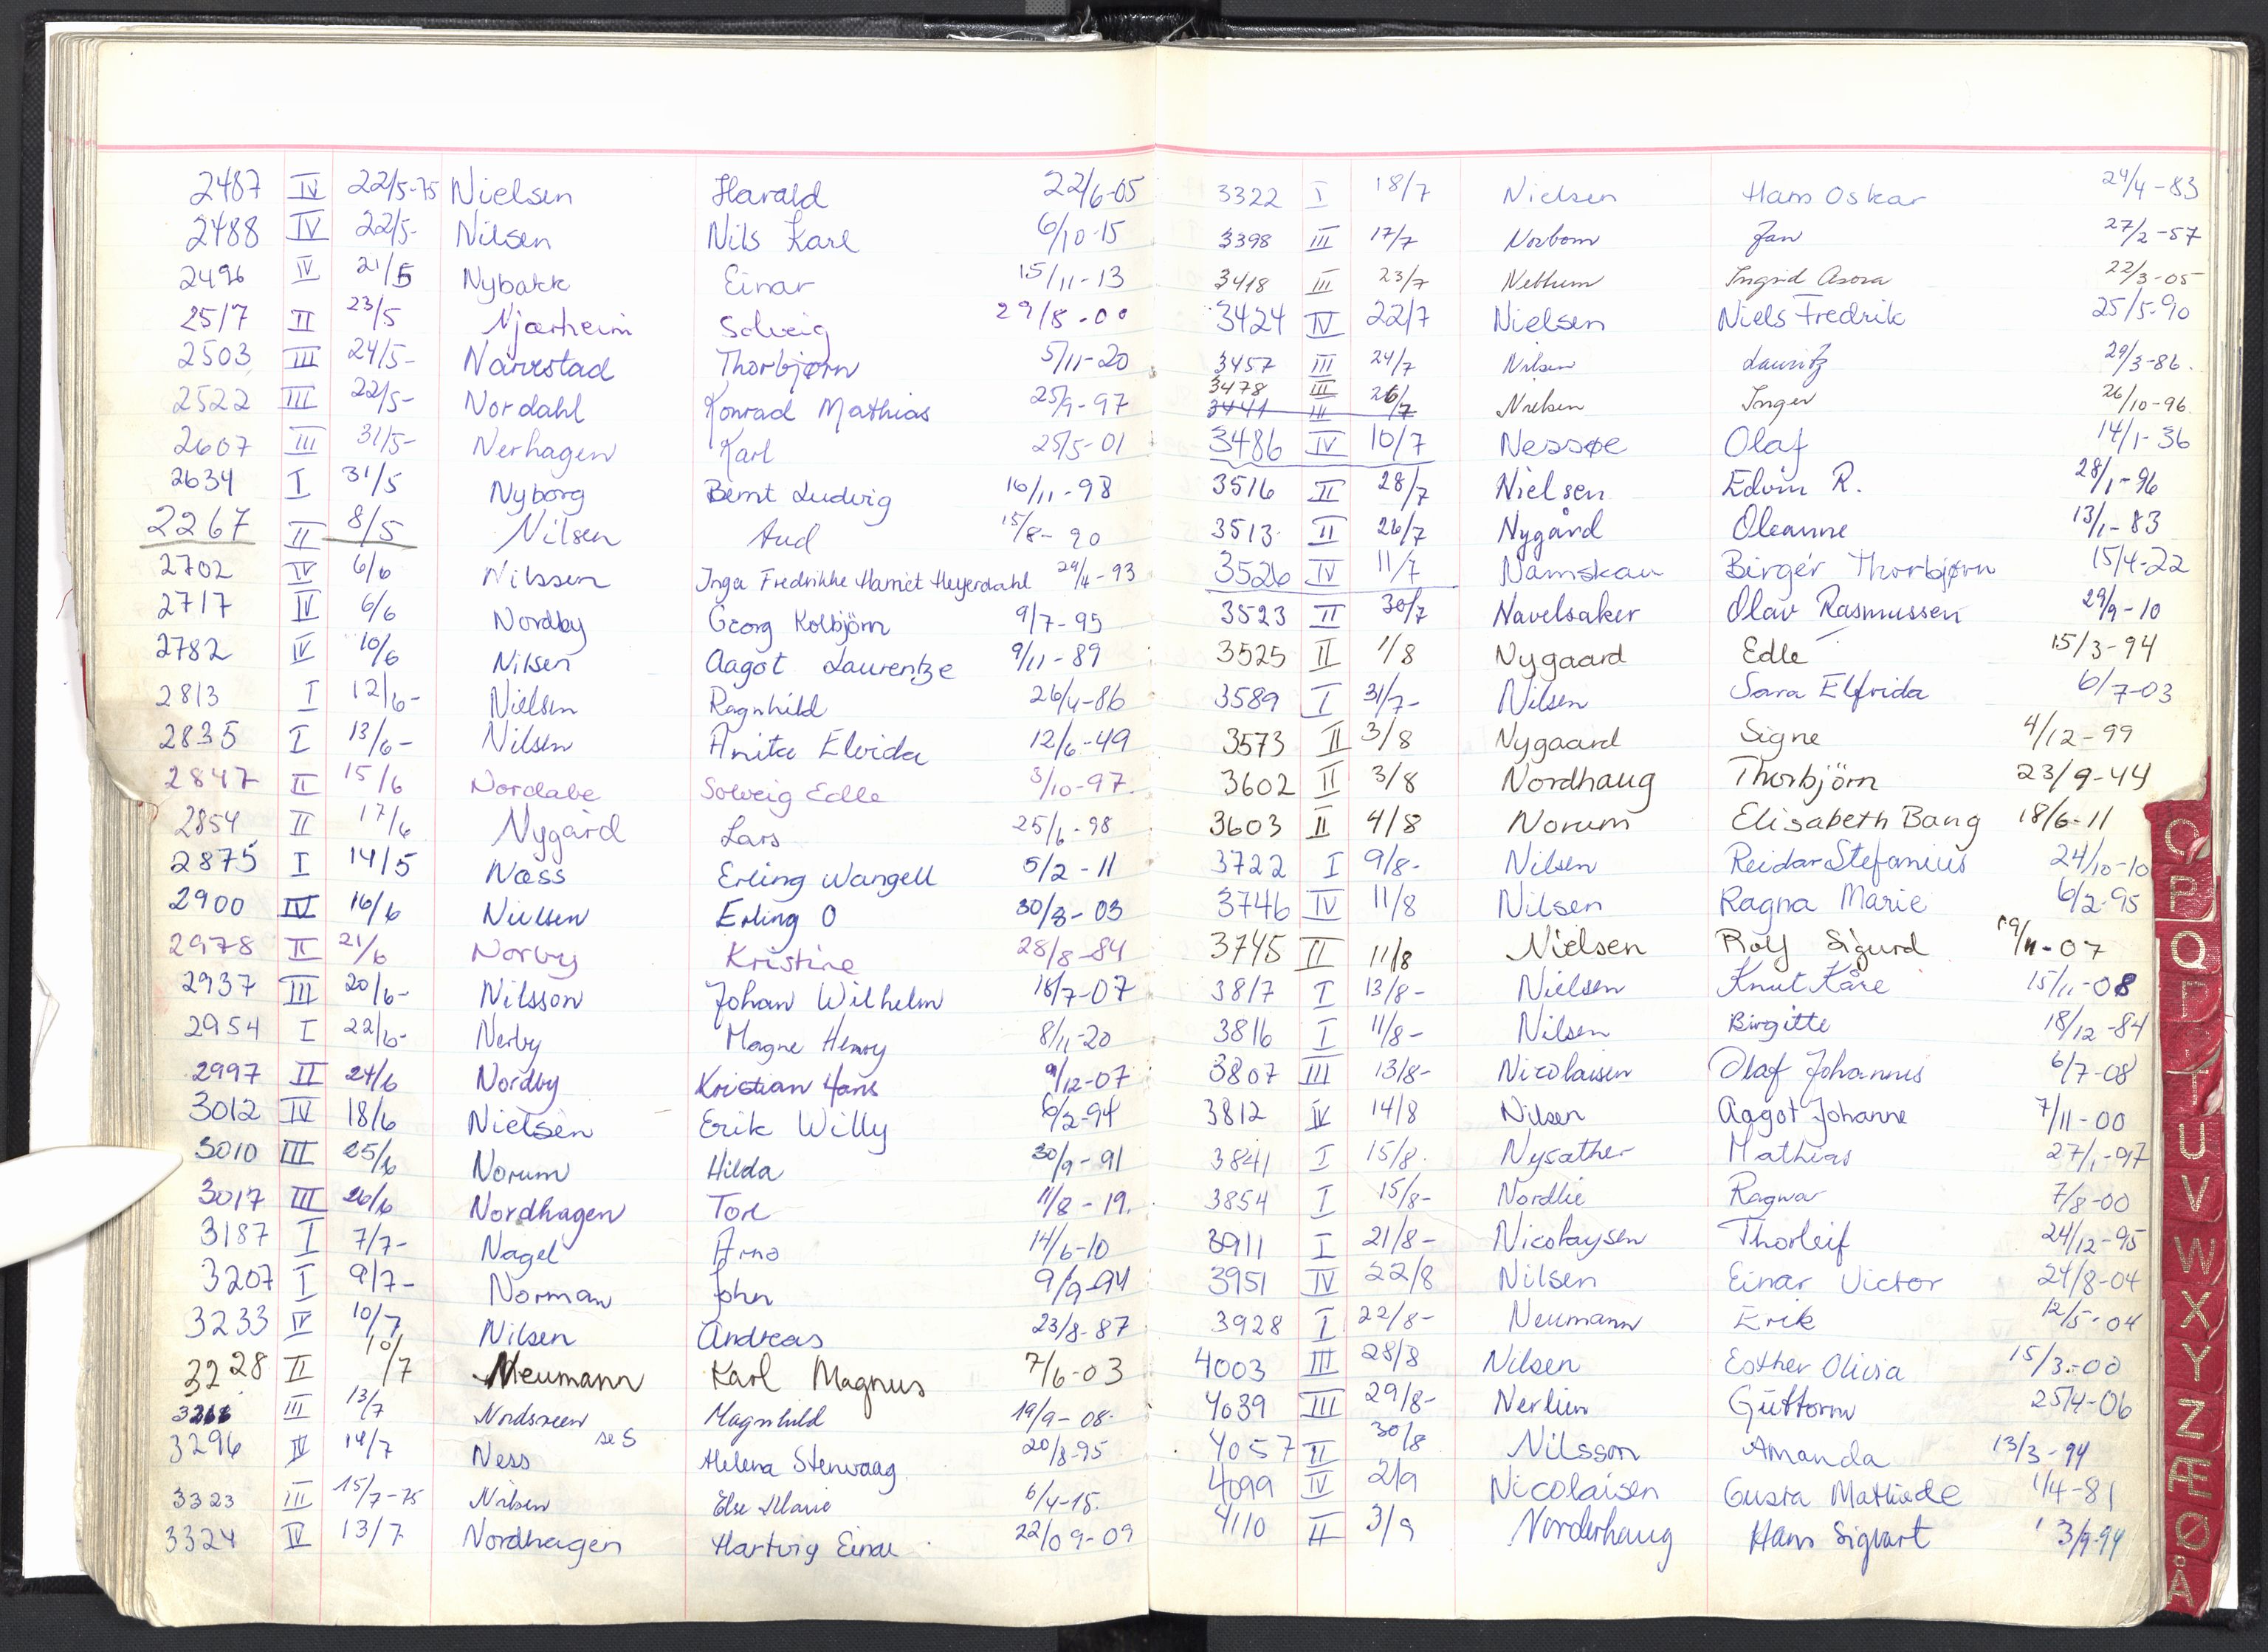 2487 IV 22/5-75 Nielsen Harald 22/6-05
2488 IV 22/5- Nilsen Nils Karl 6/10-15
2496 IV 21/5 Nybakk Einar 15/11-13
2517 II 23/5 Njærheim Solveig 29/8-00
2503 III 24/5- Narvestad Thorbjørn 5/11-20
2522 III 22/5- Nordahl Konrad Mathias 25/9-97
2607 III 31/5- Nerhagen Karl 25/5-01
2634 I 31/5 Nyborg Bernt Ludvig 16/11-98
2267 II 8/5 Nilsen Aud 15/8-90
2702 IV 6/6 Nilssen Inga Fredrikke Harriet Heyerdahl 29/4-93
2717 IV 6/6 Nordby Georg Kolbjörn 9/7-95
2782 IV 10/6 Nilsen Aagot Laurentze 9/11-89
2813 I 12/6- Nielsen Ragnhild 26/4-86
2835 I 13/6- Nilsen Anita Elvida 12/6-49
2847 II 15/6 Nordabe Solveig Edle 3/10-97.
2854 II 17/6 Nygård Lars 25/6-98
2875 I 14/5 Næss Erling Wangell 5/2-11
2900 IV 16/6 Nielsen Erling O 30/3-03
2978 II 21/6 Norby Kristine 28/8-84
2937 III 20/6- Nilsson Johan Wilhelm 18/7-07
2954 I 22/6- Nerby Magne Henry 8/11-20
2997 II 24/6 Nordby Kristian Hans 9/12-07
3012 IV 18/6 Nielsen Erik Willy 6/2-94
3010 III 25/6 Norum Hilda 30/9-91
3017 III 26/6 Nordhagen Tore 11/8-19.
3187 I 7/7- Nagel Arno 14/6-10
3207 I 9/7- Norman John 9/9-94
3233 IV 10/7 Nilsen Andreas 23/8-87
3228 II 10/7 Neumann Karl Magnus 7/6-03
III 13/7 Magnhild 19/9-08.
se S
3296 IV 14/7 Ness Helena Stenvaag 20/3-95
3323 III 15/7-75 Nilsen Else Marie 6/4-15.
3324 IV 13/7 Nordhagen Hartvig Einar 22/09-09
3322 I 18/7 Nielsen Hans Oskar 24/4-83
3398 III 17/7 Norbom Jan 27/2-57
3418 III 23/7 Nettum Ingrid Asora 22/3-05
3424 IV 22/7 Nielsen Niels Fredrik 25/5-90
3457 III 24/7 Nilsen Lauritz 29/3-86.
3478 III 26/7 Nielsen Inger 26/10-96.
3441 III
3486 IV 10/7 Nessøe Olaf 14/1-36
3516 II 28/7 Nielsen Edvin R. 28/1-96
3513 II 26/7 Nygård Oleanne 13/1-83
3526 IV 11/7 Namskau Birger Thorbjørn 15/4-22
3523 II 30/7 Navelsaker Olav Rasmussen 29/9-10
3525 II 1/8 Nygaard Edle 15/3-94
3589 I 31/7- Nilsen Sara Elfrida 6/7-03
3573 II 3/8 Nygaard Signe 4/12-99
3602 II 3/8 Nordhaug Thorbjörn 23/9-44
3603 II 4/8 Norum Elisabeth Bang 18/6-11
3722 I 9/8- Nilsen Reidar Stefanius 24/10-10
3746 IV 11/8 Nilsen Ragna Marie 6/2-95
3745 II 11/8 Nielsen Rolf Sigurd 19/11-07
3817 I 13/8- Nielsen Knut Kåre 15/11-08
3816 I 11/8- Nilsen Birgitte 18/12-84
3807 III 13/8- Nicolaisen Olaf Johannes 6/7-08
3812 IV 14/8 Nilsen Aagot Johanne 7/11-00
3841 I 15/8. Nysæther Mathias 27/1-97
3854 I 15/8- Nordlie Ragnar 7/8-00
3911 I 21/8- Nicolaysen Thorleif 24/12-95
3951 IV 22/8 Nilsen Einar Victor 24/8-04
3928 I 22/8- Neumann Erik 12/5-04
4003 III 28/8 Nilsen Esther Olivia 15/3-00
4039 III 29/8- Nerlien Guttorm 25/4-06
4057 II 30/8 Nilsson Amanda 13/3-94
4099 IV 2/9 Nicolaisen Gusta Mathilde 1/4-81
4110 II 3/9 Norderhaug Hans Sigvart 3/9-94
O
P
Q
R
T
U
V
W
X
Y
Z
Æ
Ø
Å